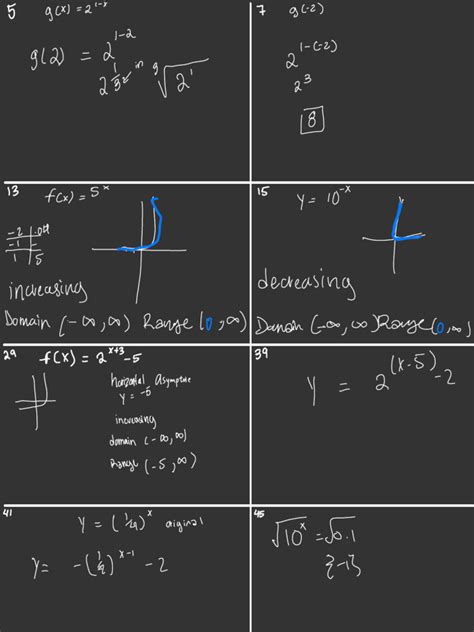 5 g(x) = 2^{1-x}
g(2) = 2^{1-2}
in
2^1
7 g(-2)
2^{1-(-2)}
2^3
8
13 f(x) = 5^x
-2
-1
1 | 5
increasing
Domain (-∞, ∞) Range (0, ∞)
15 y = 10^{-x}
decreasing
Domain (-∞, ∞) Range (0, ∞)
29 f(x) = 2^{x+3} - 5
horizontal Asymptote
y = -5
increasing
domain (-∞, ∞)
Range (-5, ∞)
39
y = 2^{(x-5)} - 2
41
y = (1/4)^x original
y = -(1/4)^{x-1} - 2
45
√10^x = √0.1
{-1}